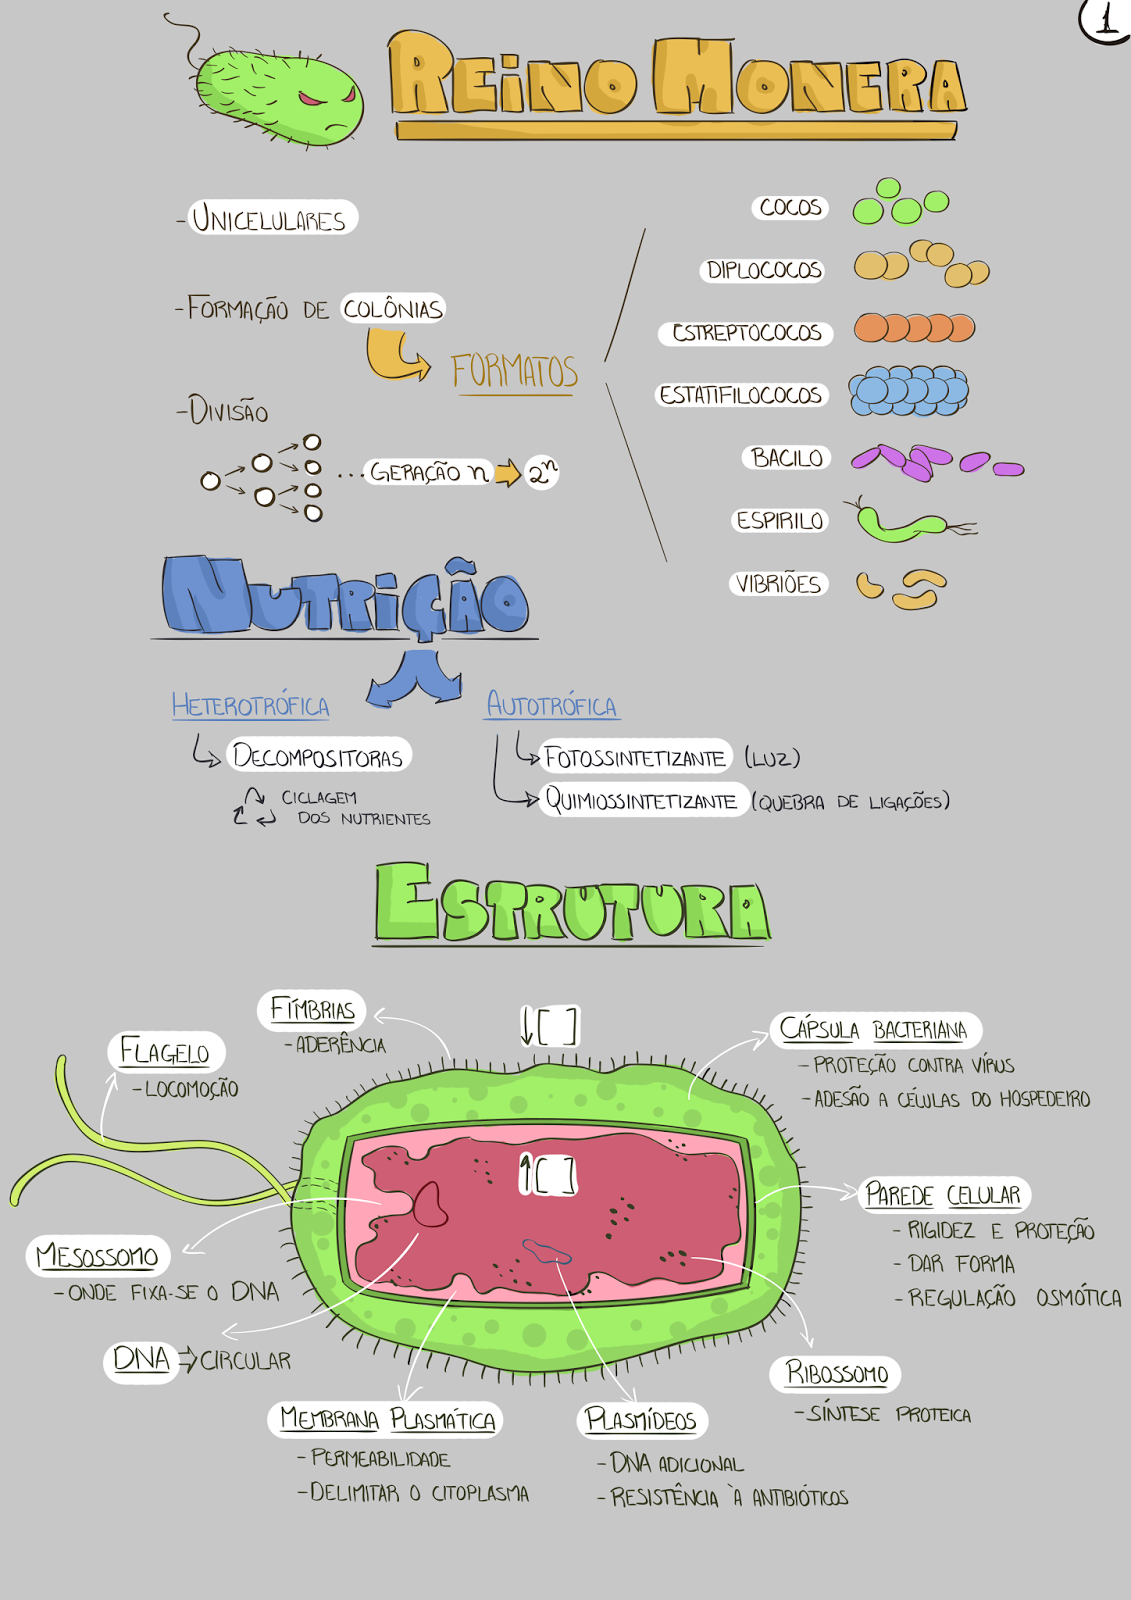 1
REINO MONERA
- UNICELULARES
- FORMAÇÃO DE COLÔNIAS
FORMATOS
COCOS
DIPLOCOCOS
ESTREPTOCOCOS
ESTATIFILOCOCOS
BACILO
ESPIRILO
VIBRIÕES
- DIVISÃO
... GERAÇÃO n
2ⁿ
NUTRIÇÃO
HETEROTRÓFICA
DECOMPOSITORAS
CICLAGEM
DOS NUTRIENTES
AUTOTRÓFICA
FOTOSSINTETIZANTE (LUZ)
QUIMIOSSINTETIZANTE (QUEBRA DE LIGAÇÕES)
ESTRUTURA
FÍMBRIAS
- ADERÊNCIA
↓[ ]
CÁPSULA BACTERIANA
- PROTEÇÃO CONTRA VÍRUS
- ADESÃO A CÉLULAS DO HOSPEDEIRO
FLAGELO
- LOCOMOÇÃO
↑[ ]
PAREDE CELULAR
- RIGIDEZ E PROTEÇÃO
- DAR FORMA
- REGULAÇÃO OSMÓTICA
MESOSSOMO
- ONDE FIXA-SE O DNA
DNA ⇨ CIRCULAR
RIBOSSOMO
- SÍNTESE PROTEICA
MEMBRANA PLASMÁTICA
- PERMEABILIDADE
- DELIMITAR O CITOPLASMA
PLASMÍDEOS
- DNA ADICIONAL
- RESISTÊNCIA À ANTIBIÓTICOS